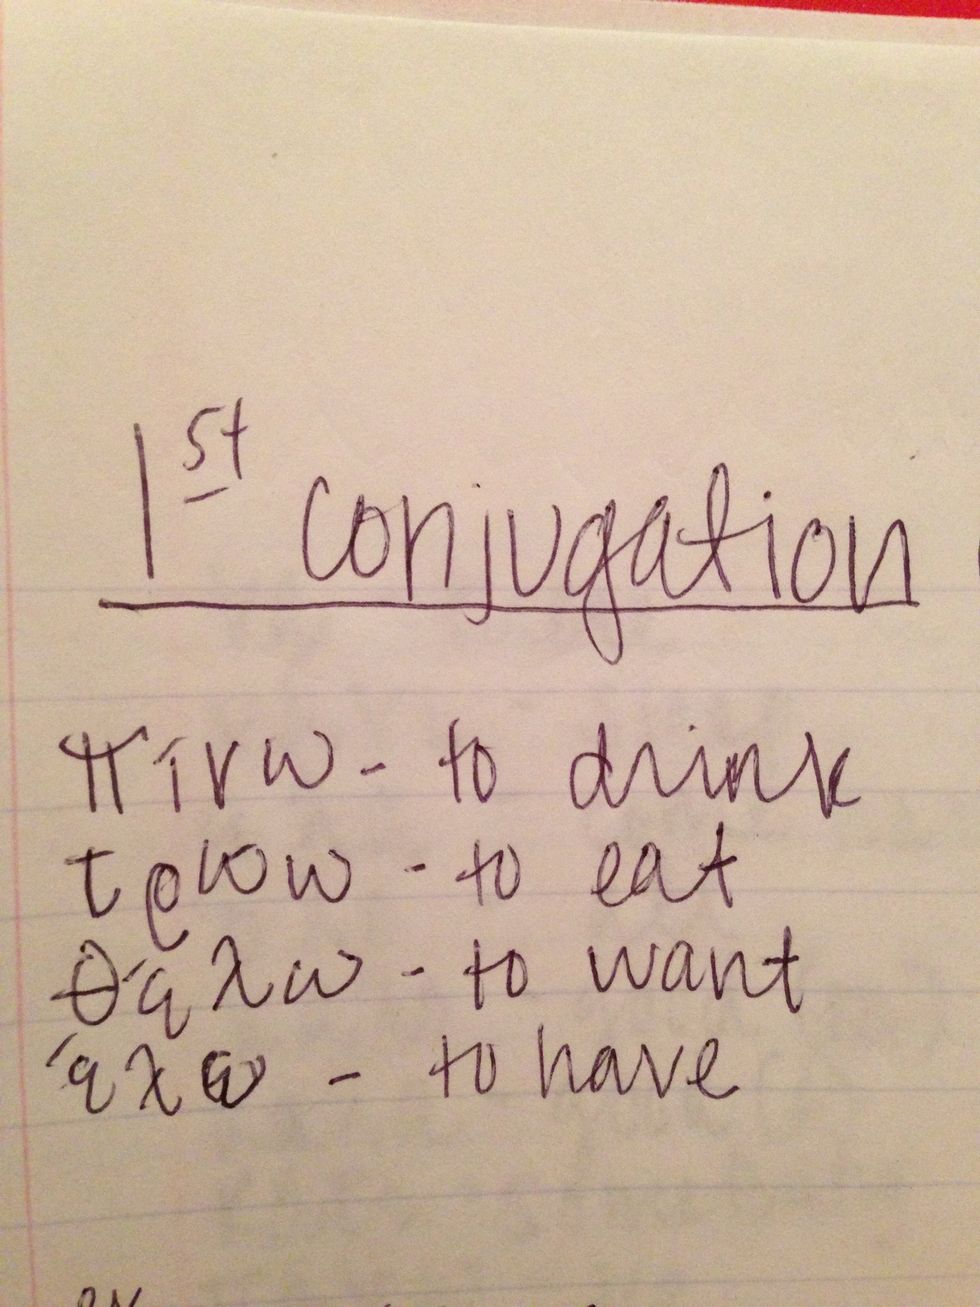 1st conjugation
πίνω - to drink
τρώω - to eat
θέλω - to want
έχω - to have